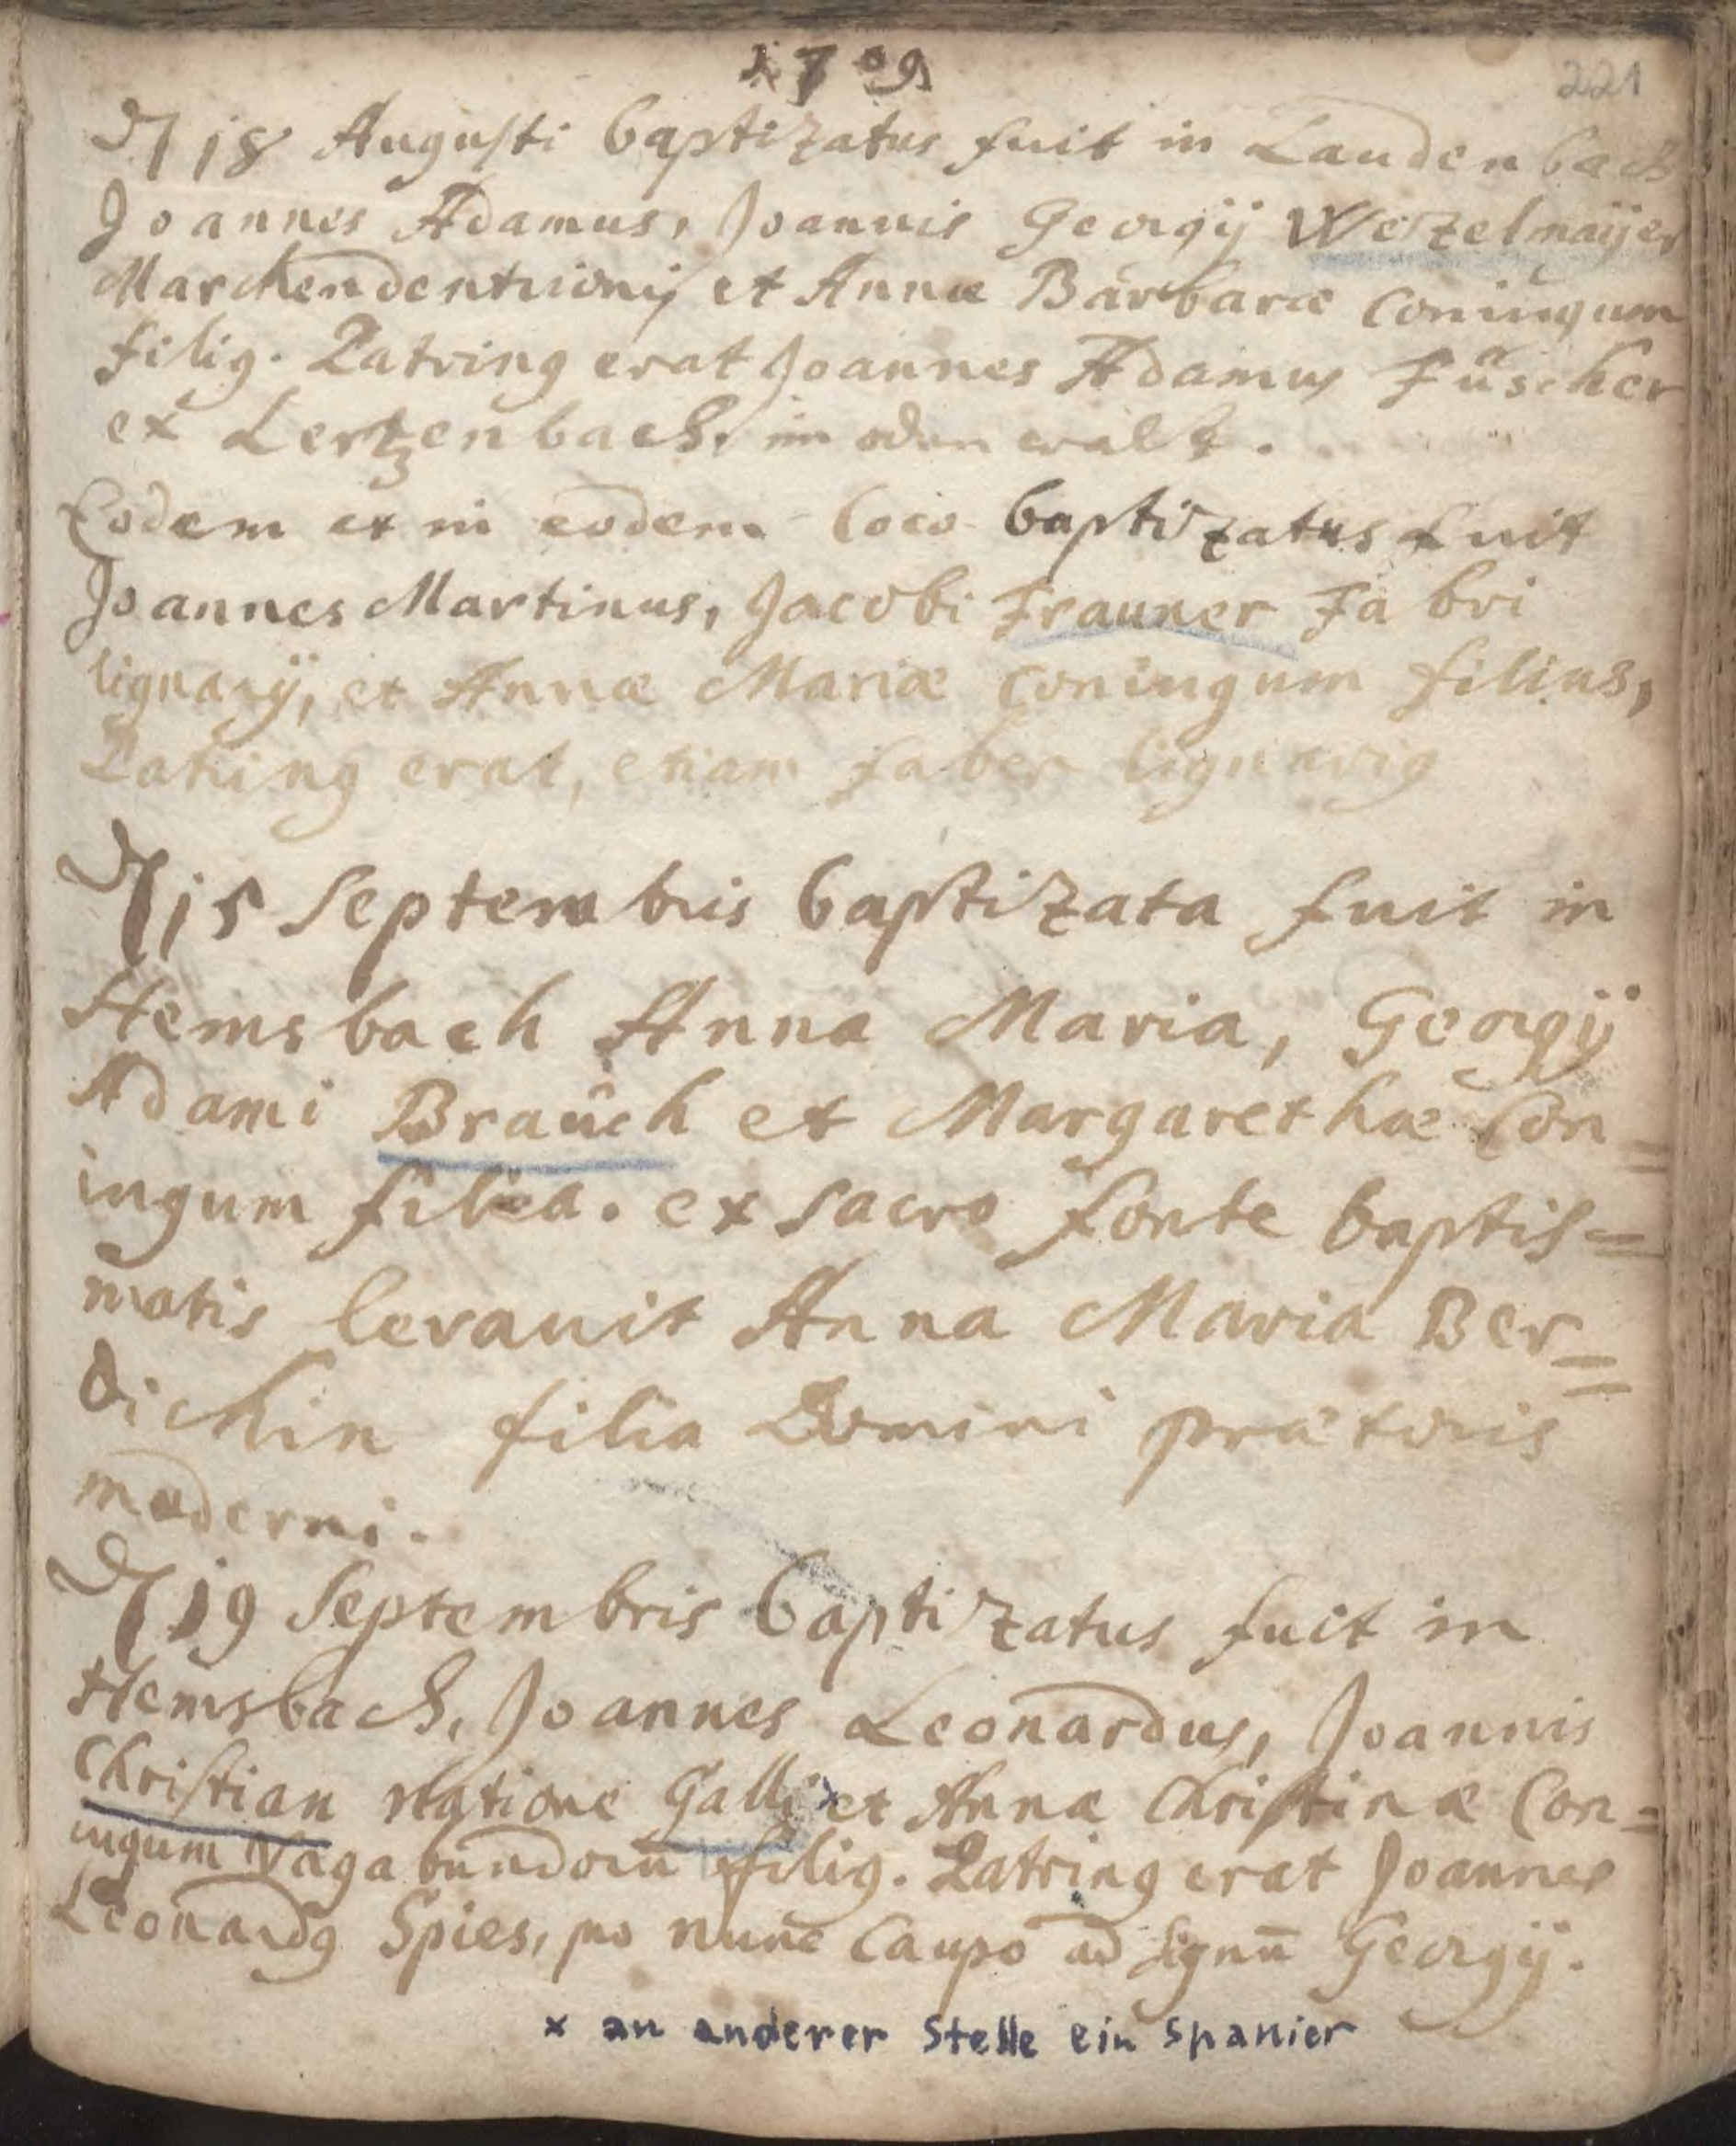 1709
221
D 18 Augusti baptizatus fuit in Laudenbach
Joannes Adamus, Joannis Georgij Wetzelmaÿer
et Annæ Barbaræ Coniugum
filig. Patring erat Joannes Adamus Füscher
ex Lertzenbach, im
Eodem et in eodem loco baptizatus fuit
Joannes Martinus, Jacobi Frauner Fabri
lignarÿ, et Annæ Mariæ Coniugum filius,
Patring erat, etiam faber lignarig
D 15 Septembris baptizata fuit in
Hemsbach Anna Maria, Georgÿ
Adami Braŭch et Margarethæ Con=
iugum filia. ex sacro fonte baptis=
matis levauit Anna Maria Ber=
dichin filia Domini prætoris
moderni.
D 19 Septembris baptizatus fuit in
Hemsbach, Joannes Leonardus, Joannis
Christian natione Galli x et Annæ Christinæ Con=
iugum Vagabundorū filig. Patring erat Joannes
Leonardg Spies, pro nunc Caupo ad signū Georgÿ.
x an anderer Stelle ein Spanier